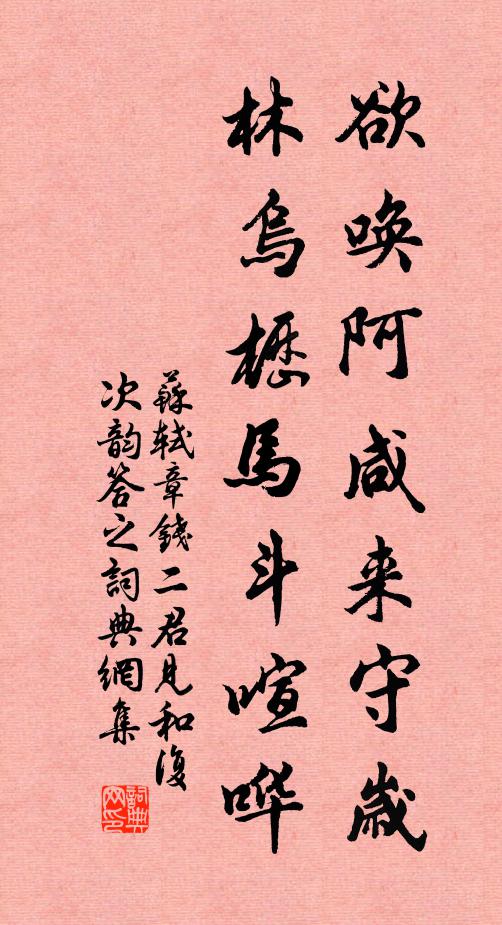 欲唤阿咸来守歲
林烏櫪馬斗喧哗
蘇軾章錢二君見和復
次韵答之詞典網集
詞典
网印